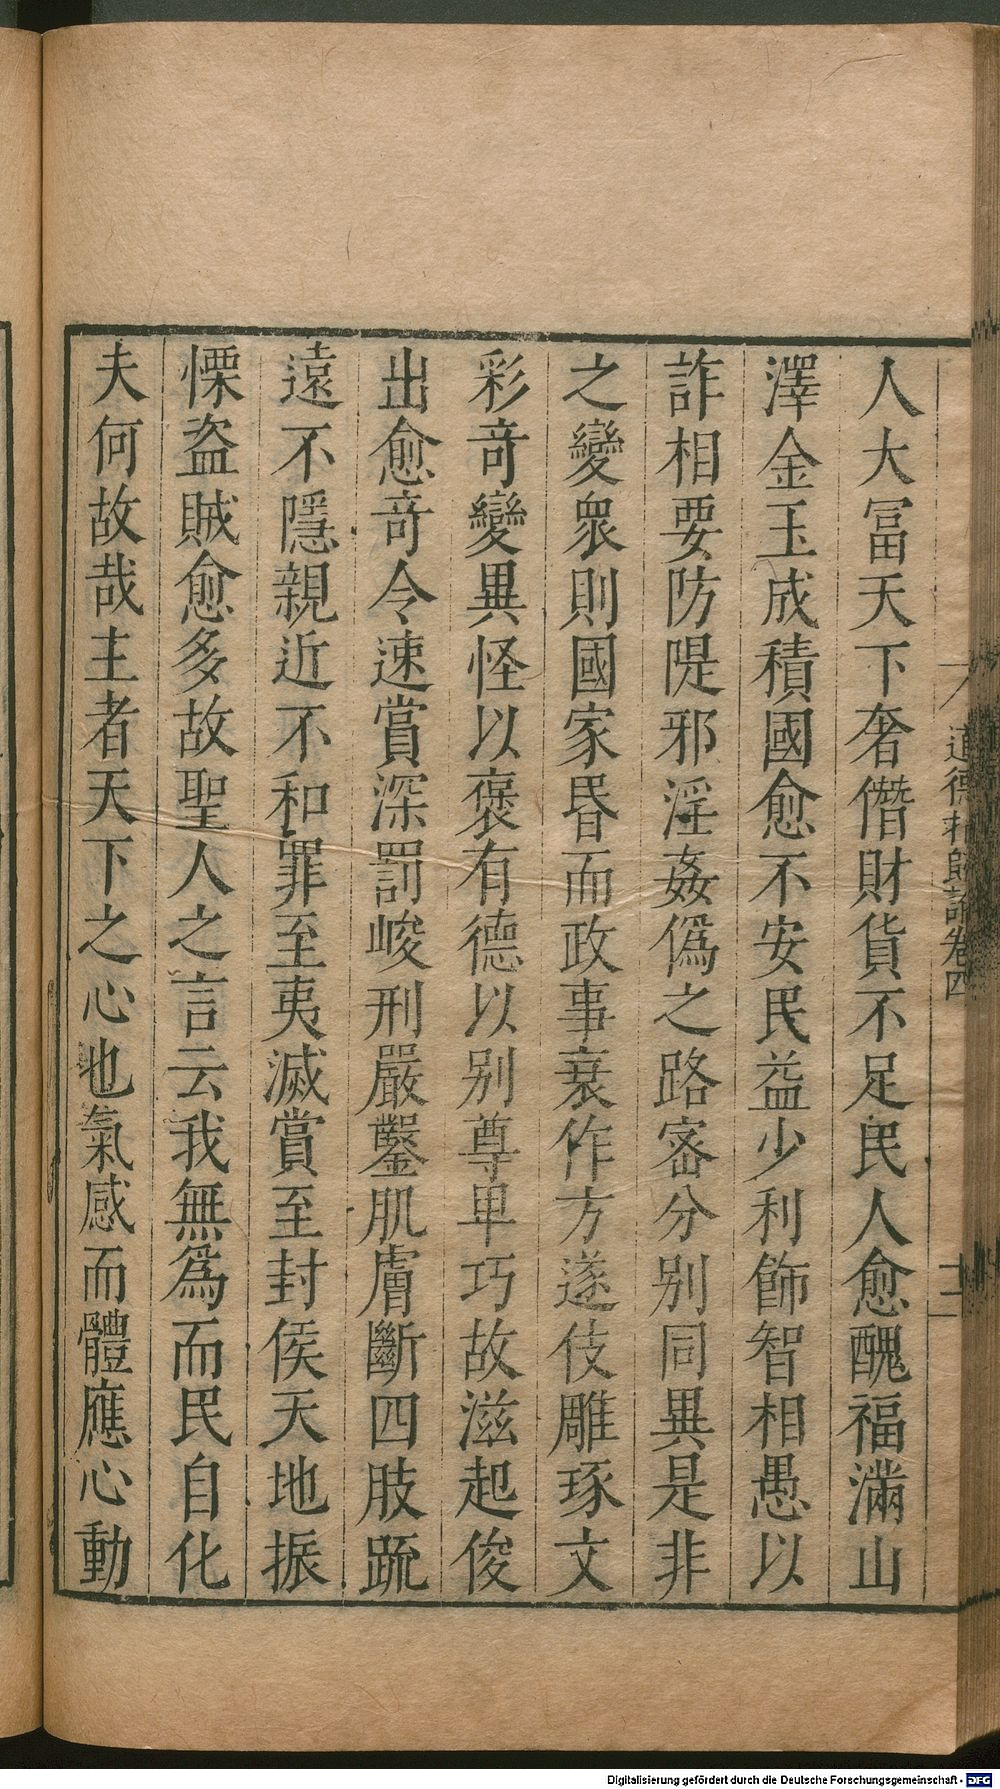 人大冨天下奢僭財貨不足民人愈醜福滿山
澤金玉成積國愈不安民益少利飾智相愚以
詐相要防隄邪淫姦僞之路密分别同異是非
之變衆則國家昬而政事衰作方遂伎雕琢文
彩竒變異怪以褒有德以别尊卑巧故滋起俊
出愈竒令速賞深罰峻刑嚴鑿肌膚斷四肢䟽
遠不隱親近不和罪至夷滅賞至封侯天地振
慄盗賊愈多故聖人之言云我無爲而民自化
夫何故哉主者天下之心也氣感而體應心動
道德指歸論卷四
十二
Digitalisierung gefördert durch die Deutsche Forschungsgemeinschaft - DFG